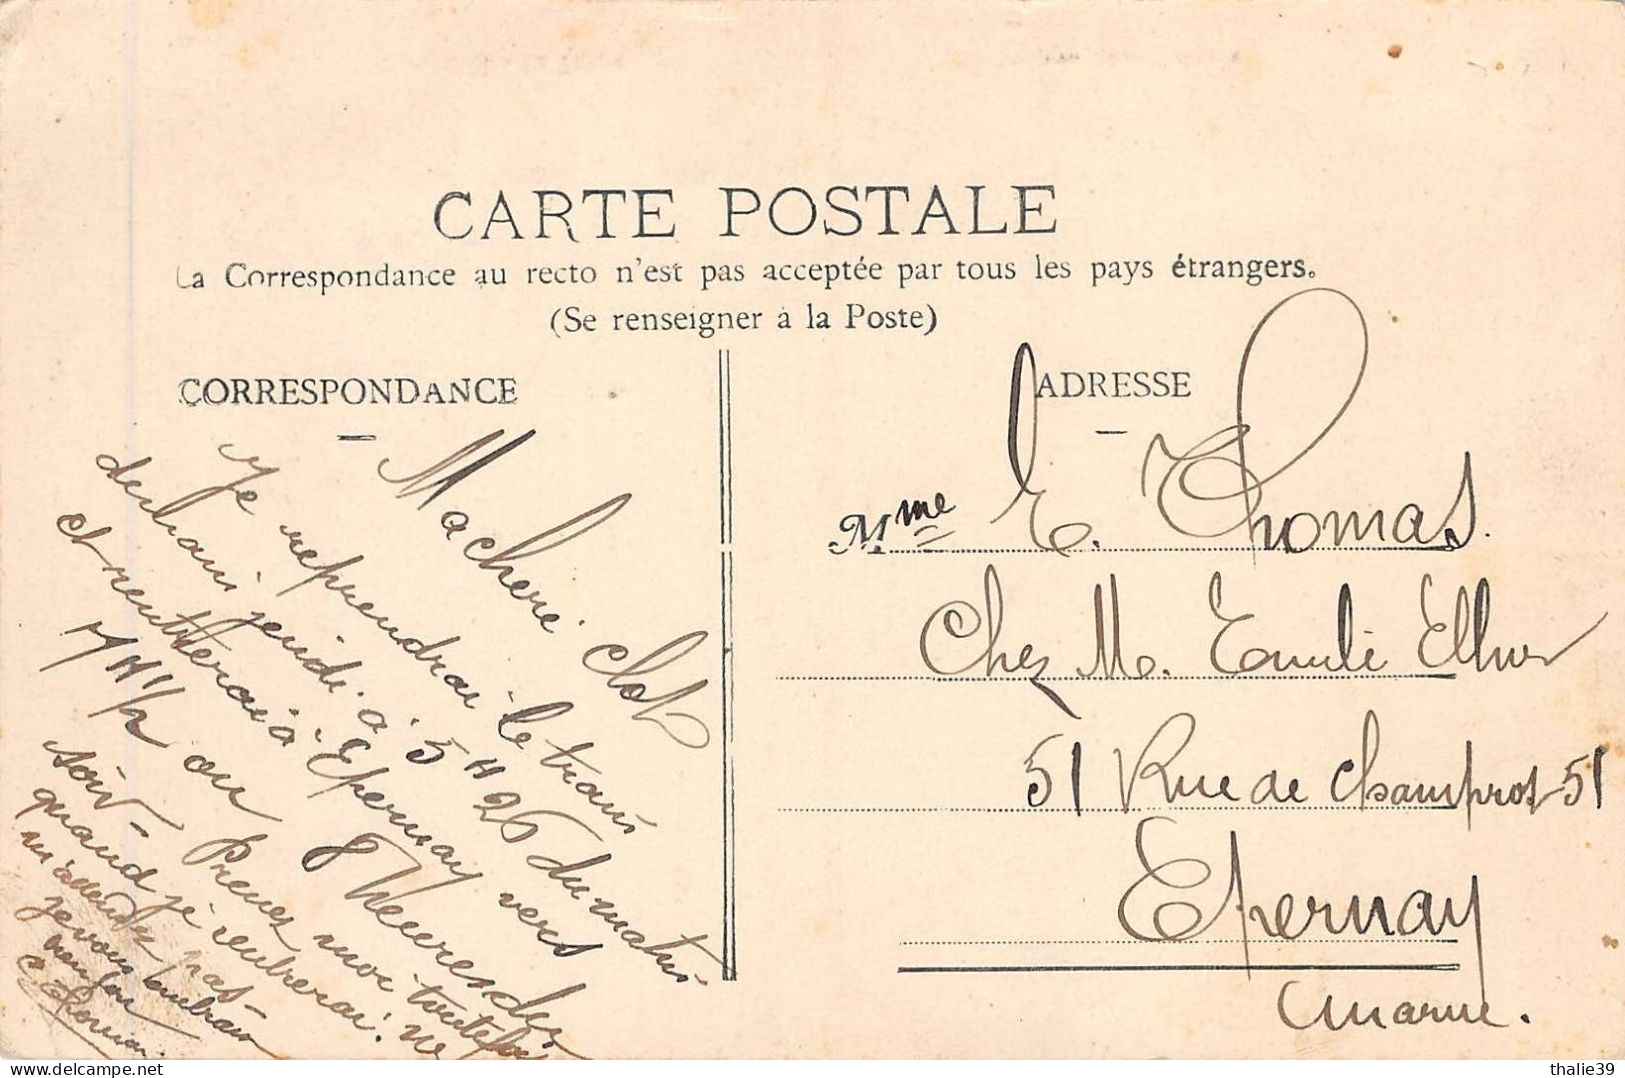 CARTE POSTALE
La Correspondance au recto n'est pas acceptée par tous les pays étrangers.
(Se renseigner à la Poste)
CORRESPONDANCE
Ma cheré Clot
Je reprendrai le train
demain jeudi à 5 H 26 du matin
et rentrerai à Epernay vers
7 H 1/2 ou 8 heures du
soir - Prenez moi toutefois
quand je rentrerai. ne
m'attendez pas -
je vous embrasse
ADRESSE
Mme E. Thomas.
Chez M. Emile
51 Rue de Champrot 51
Epernay
Marne.
thalie39